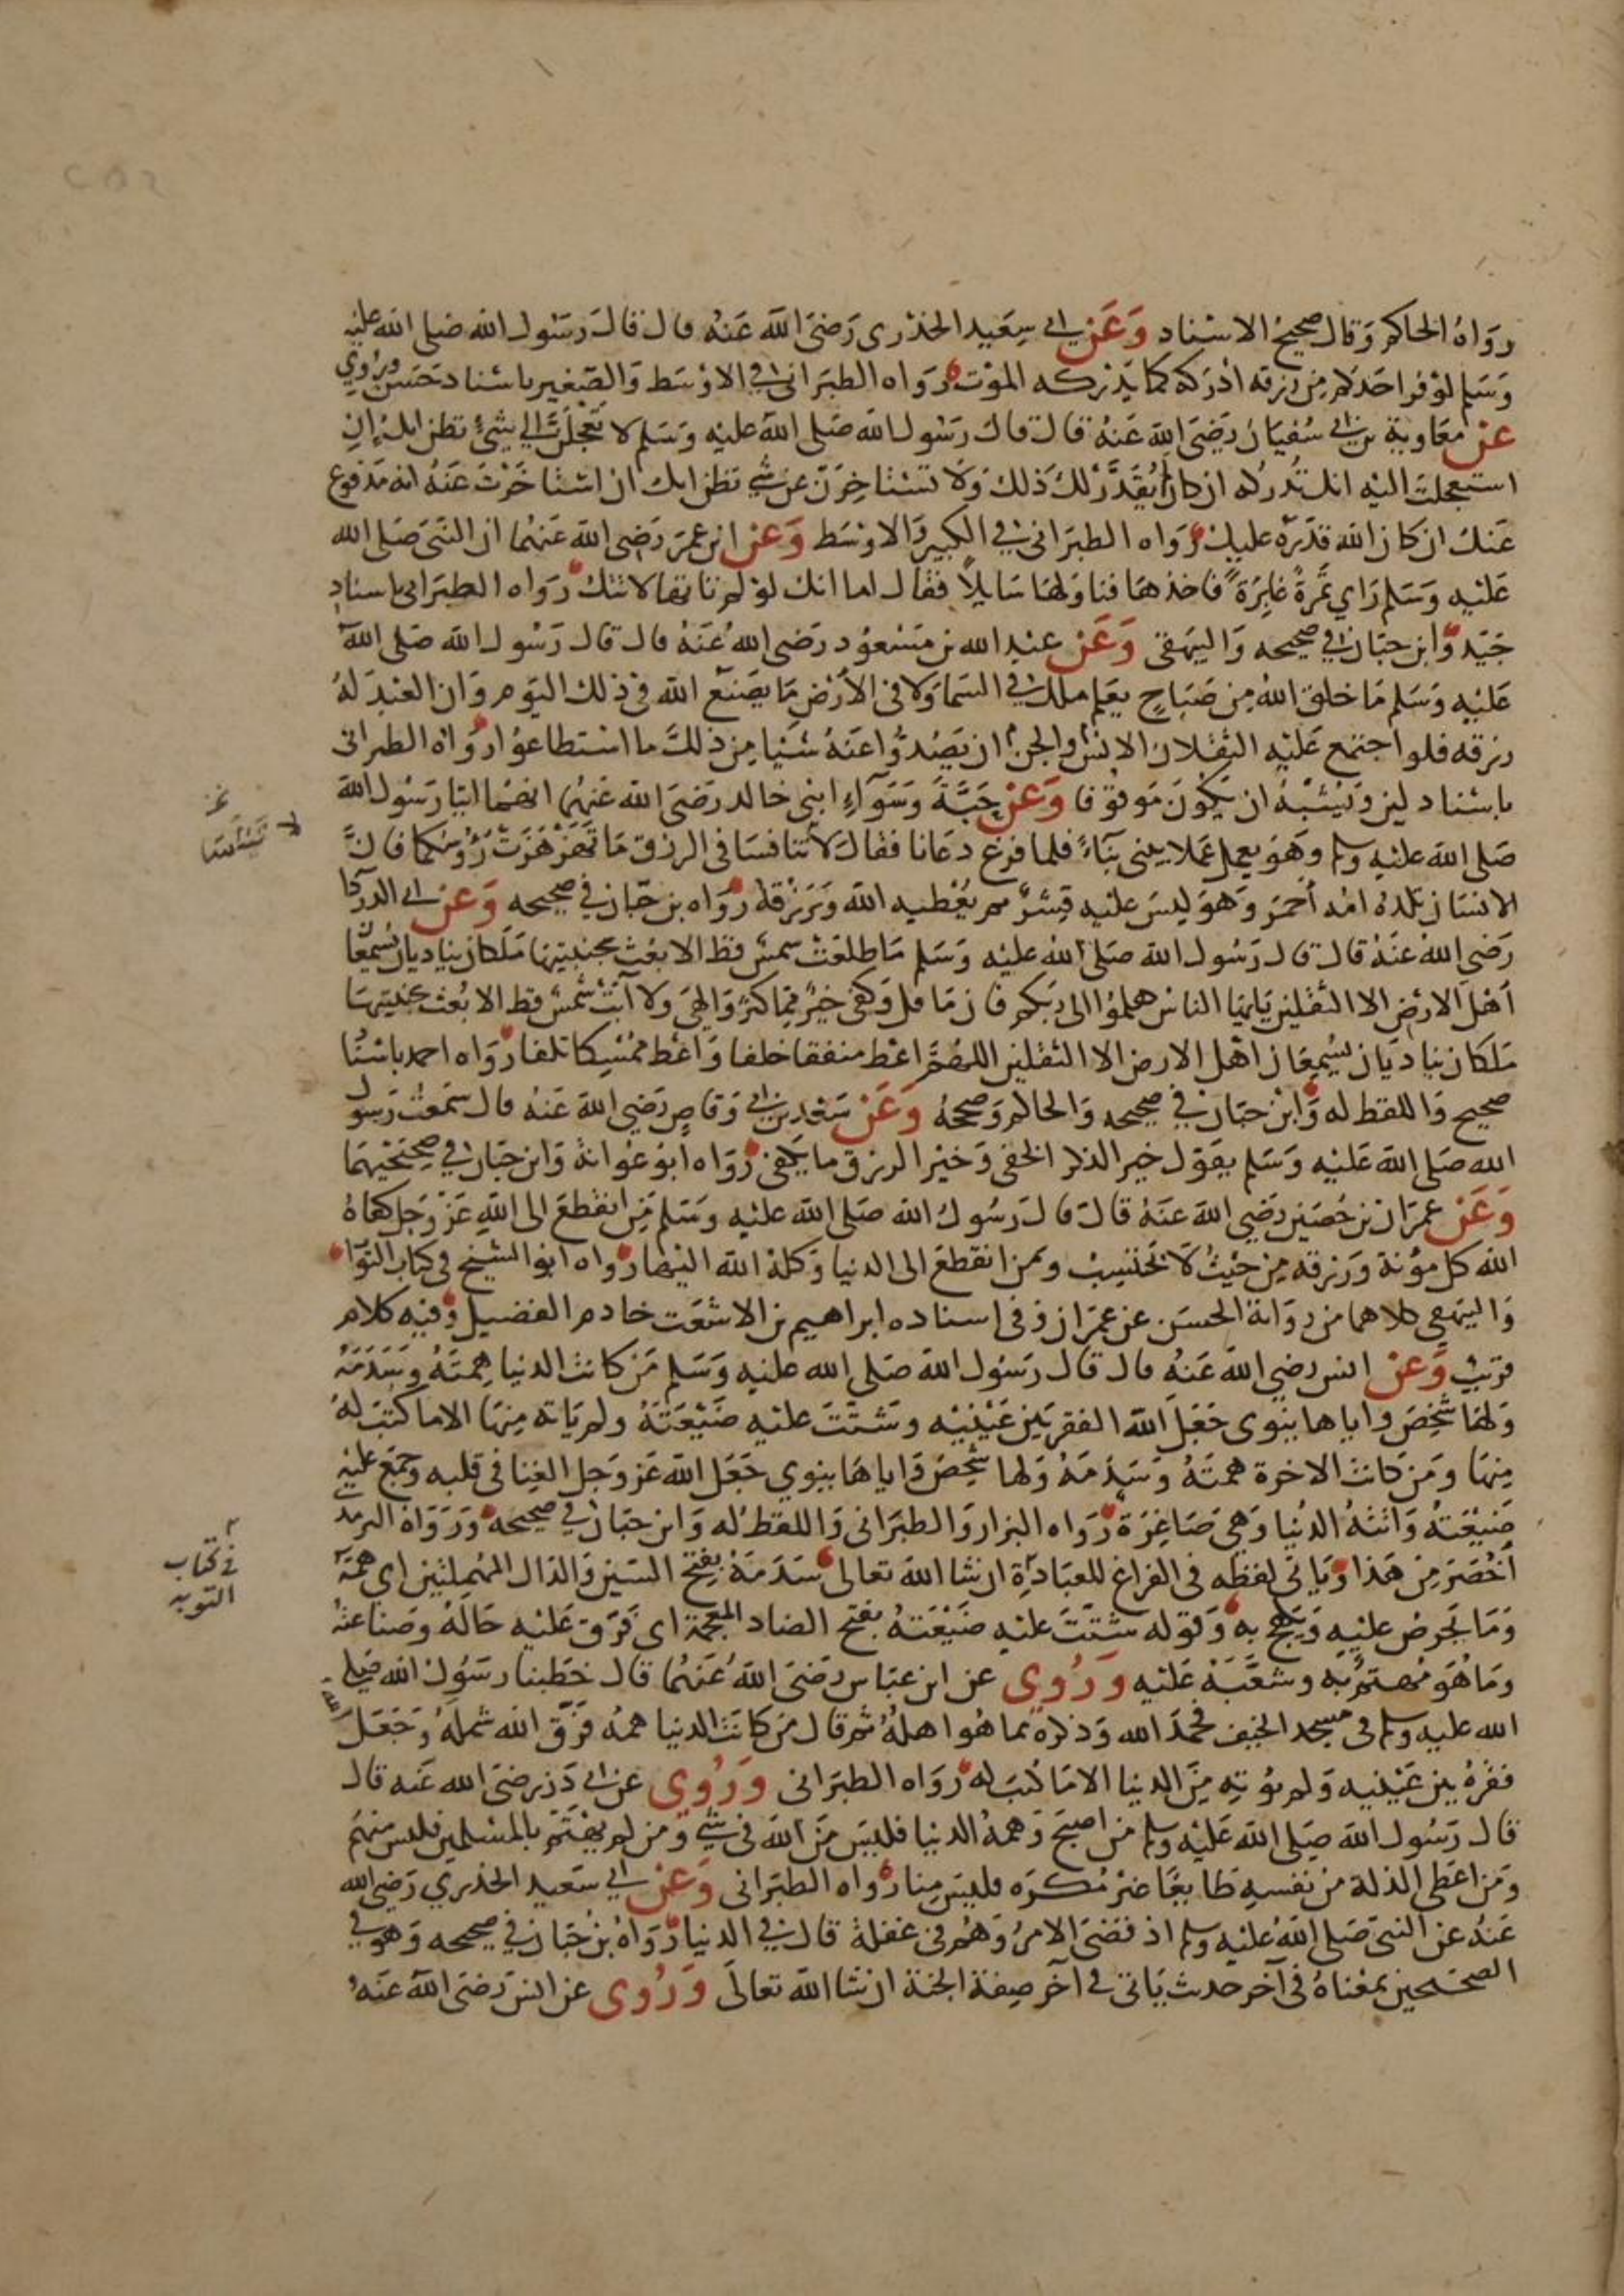 رواه الحاكم وقال صحيح الاسناد وعن ابي سعيد الخدري رضي الله عنه قال قال رسول الله صلى الله عليه
وسلم لو فر احدكم من رزقه ادركه كما يدركه الموت رواه الطبراني في الاوسط والصغير باسناد حسن وروي
عن معاوية بن ابي سفيان رضي الله عنه قال قال رسول الله صلى الله عليه وسلم لا تعجلن الى شيء تظن انك ان
استعجلت اليه انك تدركه ان كان لم يقدر لك ذلك ولا تستاخرن عن شي تظن انك ان استاخرت عنه انه مدفوع
عنك ان كان الله قدره عليك رواه الطبراني في الكبير والاوسط وعن ابن عمر رضي الله عنهما ان النبي صلى الله
عليه وسلم راي تمرة غايرة فاخذها فناولها سايلا فقال اما انك لو لم تاتها لاتتك رواه الطبراني باسناد
جيد وابن حبان في صحيحه والبيهقي وعن عبد الله بن مسعود رضي الله عنه قال قال رسول الله صلى الله
عليه وسلم ما خلق الله من صباح يعلم ملك في السما ولا في الارض ما يصنع الله في ذلك اليوم وان العبد له
رزقه فلو اجتمع عليه الثقلان الانس والجن ان يصدوا عنه شيا من ذلك ما استطاعوا رواه الطبراني
باسناد لين ويشبه ان يكون موقوفا وعن حبة وسواء ابني خالد رضي الله عنهما انهما اتيا رسول الله
صلى الله عليه وسلم وهو يعمل عملا يبني بناء فلما فرغ دعانا فقال لا تنافسا في الرزق ما تهزهزت رؤوسكما فان
الانسان تلده امه احمر وهو ليس عليه قشر ثم يعطيه الله ويرزقه رواه بن حبان في صحيحه وعن ابي الدردا
رضي الله عنه قال قال رسول الله صلى الله عليه وسلم ما طلعت شمس قط الا بعث بجنبتيها ملكان يناديان يسمعا
اهل الارض الا الثقلين يايها الناس هلموا الى ربكم فان ما قل وكفى خير مما كثر والهى ولا آبت شمس قط الا بعث بجنبتيها
ملكان يناديان يسمعان اهل الارض الا الثقلين اللهم اعط منفقا خلفا واعط ممسكا تلفا رواه احمد باسنا
صحيح واللفظ له وابن حبان في صحيحه والحاكم وصححه وعن سعد بن ابي وقاص رضي الله عنه قال سمعت رسول
الله صلى الله عليه وسلم يقول خير الذكر الخفي وخير الرزق ما يكفي رواه ابو عوانة وابن حبان في صحيحيهما
وعن عمران بن حصين رضي الله عنه قال قال رسول الله صلى الله عليه وسلم من انقطع الى الله عز وجل كفاه
الله كل مؤنة ورزقه من حيث لا يحتسب ومن انقطع الى الدنيا وكله الله اليها رواه ابو الشيخ في كتاب الثواب
والبيهقي كلاهما من رواية الحسن عن عمران وفي اسناده ابراهيم بن الاشعث خادم الفضيل وفيه كلام
قريب وعن انس رضي الله عنه قال قال رسول الله صلى الله عليه وسلم من كانت الدنيا همته وسدمه
ولها شخص واياها ينوي جعل الله الفقر بين عينيه وشتت عليه ضيعته ولم ياته منها الا ما كتب له
منها ومن كانت الاخرة همته وسدمه ولها شخص واياها ينوي جعل الله عز وجل الغنا في قلبه وجمع عليه
ضيعته واتته الدنيا وهي صاغرة رواه البزار والطبراني واللفظ له وابن حبان في صحيحه ورواه الترمذي
اخصر من هذا وياتي لفظه في الفراغ للعبادة ان شا الله تعالى سدمه بفتح السين والدال المهملتين اي همه
وما يحرص عليه ويلهج به وقوله شتت عليه ضيعته بفتح الضاد المعجمة اي فرق عليه حاله وصناعته
وما هو مهتم به وشعبه عليه وروي عن ابن عباس رضي الله عنهما قال خطبنا رسول الله صلى
الله عليه وسلم في مسجد الخيف فحمد الله وذكره بما هو اهله ثم قال من كانت الدنيا همه فرق الله شمله وجعل
فقره بين عينيه ولم يؤته من الدنيا الا ما كتب له رواه الطبراني وروي عن ابي ذر رضي الله عنه قال
قال رسول الله صلى الله عليه وسلم من اصبح وهمه الدنيا فليس من الله في شي ومن لم يهتم بالمسلمين فليس منهم
ومن اعطى الذلة من نفسه طايعا غير مكره فليس منا رواه الطبراني وعن ابي سعيد الخدري رضي الله
عنه عن النبي صلى الله عليه وسلم اذ قضي الامر وهم في غفلة قال في الدنيا رواه بن حبان في صحيحه وهو في
الصحيحين بمعناه في آخر حديث ياتي في آخر صفة الجنة ان شا الله تعالى وروي عن انس رضي الله عنه
في كتاب
التوبه